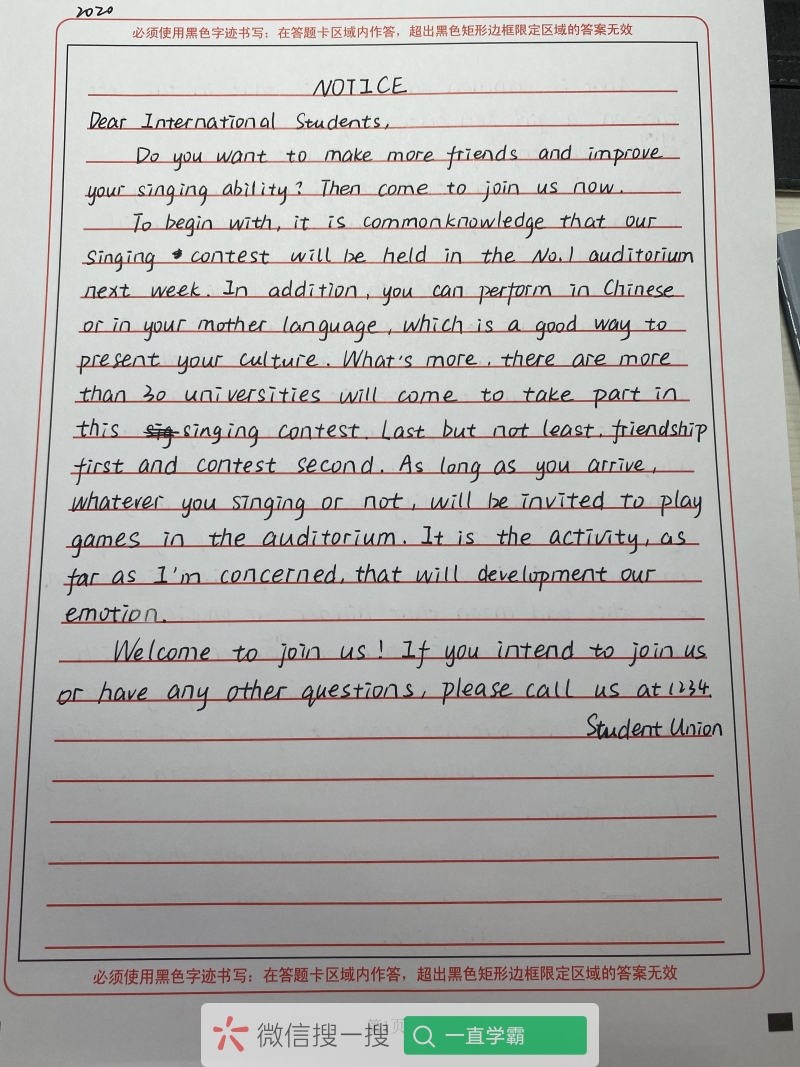 2020
必须使用黑色字迹书写：在答题卡区域内作答，超出黑色矩形边框限定区域的答案无效
NOTICE
Dear International Students,
Do you want to make more friends and improve
your singing ability? Then come to join us now.
To begin with, it is commonknowledge that our
singing contest will be held in the No.1 auditorium
next week. In addition, you can perform in Chinese
or in your mother language, which is a good way to
present your culture. What's more, there are more
than 30 universities will come to take part in
this sig singing contest. Last but not least, friendship
first and contest second. As long as you arrive,
whatever you singing or not, will be invited to play
games in the auditorium. It is the activity, as
far as I'm concerned, that will development our
emotion.
Welcome to join us! If you intend to join us
or have any other questions, please call us at 1234.
Student Union
必须使用黑色字迹书写：在答题卡区域内作答，超出黑色矩形边框限定区域的答案无效
微信搜一搜 一直学霸